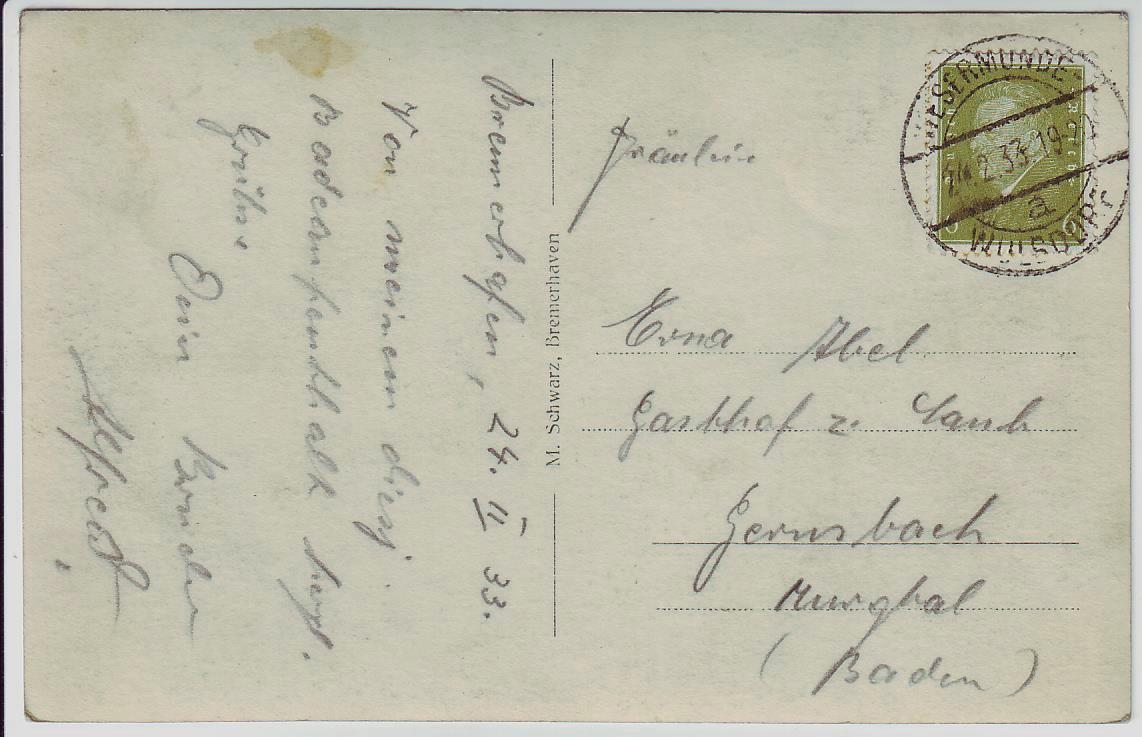 Bremerhafen, 24. II 33.
Von meinem diesj.
Badeaufenthalt herzl.
Grüße
Dein Bruder
Alfred
M. Schwarz, Bremerhaven
Fräulein
Erna Abel
Gasthof z. Laub
Gernsbach
Murgtal
(Baden)
WESERMÜNDE
24.2.33.19-20
a
WULSDORF
6 6